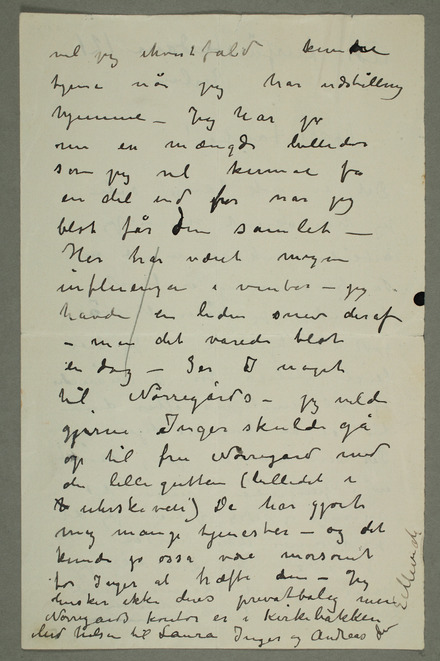 vil jeg ihvertfald kunne
tjene når jeg har udstilling
hjemme – Jeg har jo
nu en mængde billeder
som jeg vil kunne få
en del ud for når jeg
blot får dem samlet –
Her har været megen
influenza i vinter – jeg
havde en liden snev deraf
– men det varede blot
en dag – Ser I noget
til Nørregårds – jeg vilde
gjerne Inger skulde gå
op til fru Nørregård med
den lille gutten (billedet i
uhrskiven) De har gjort
mig mange tjenester – og det
kunde jo også være morsomt
for Inger at træffe dem – Jeg
husker ikke deres privatbolig men
Nørregårds kontor er i Kirkebakken
Med hilsen til Laura Inger og Andreas
E Munch